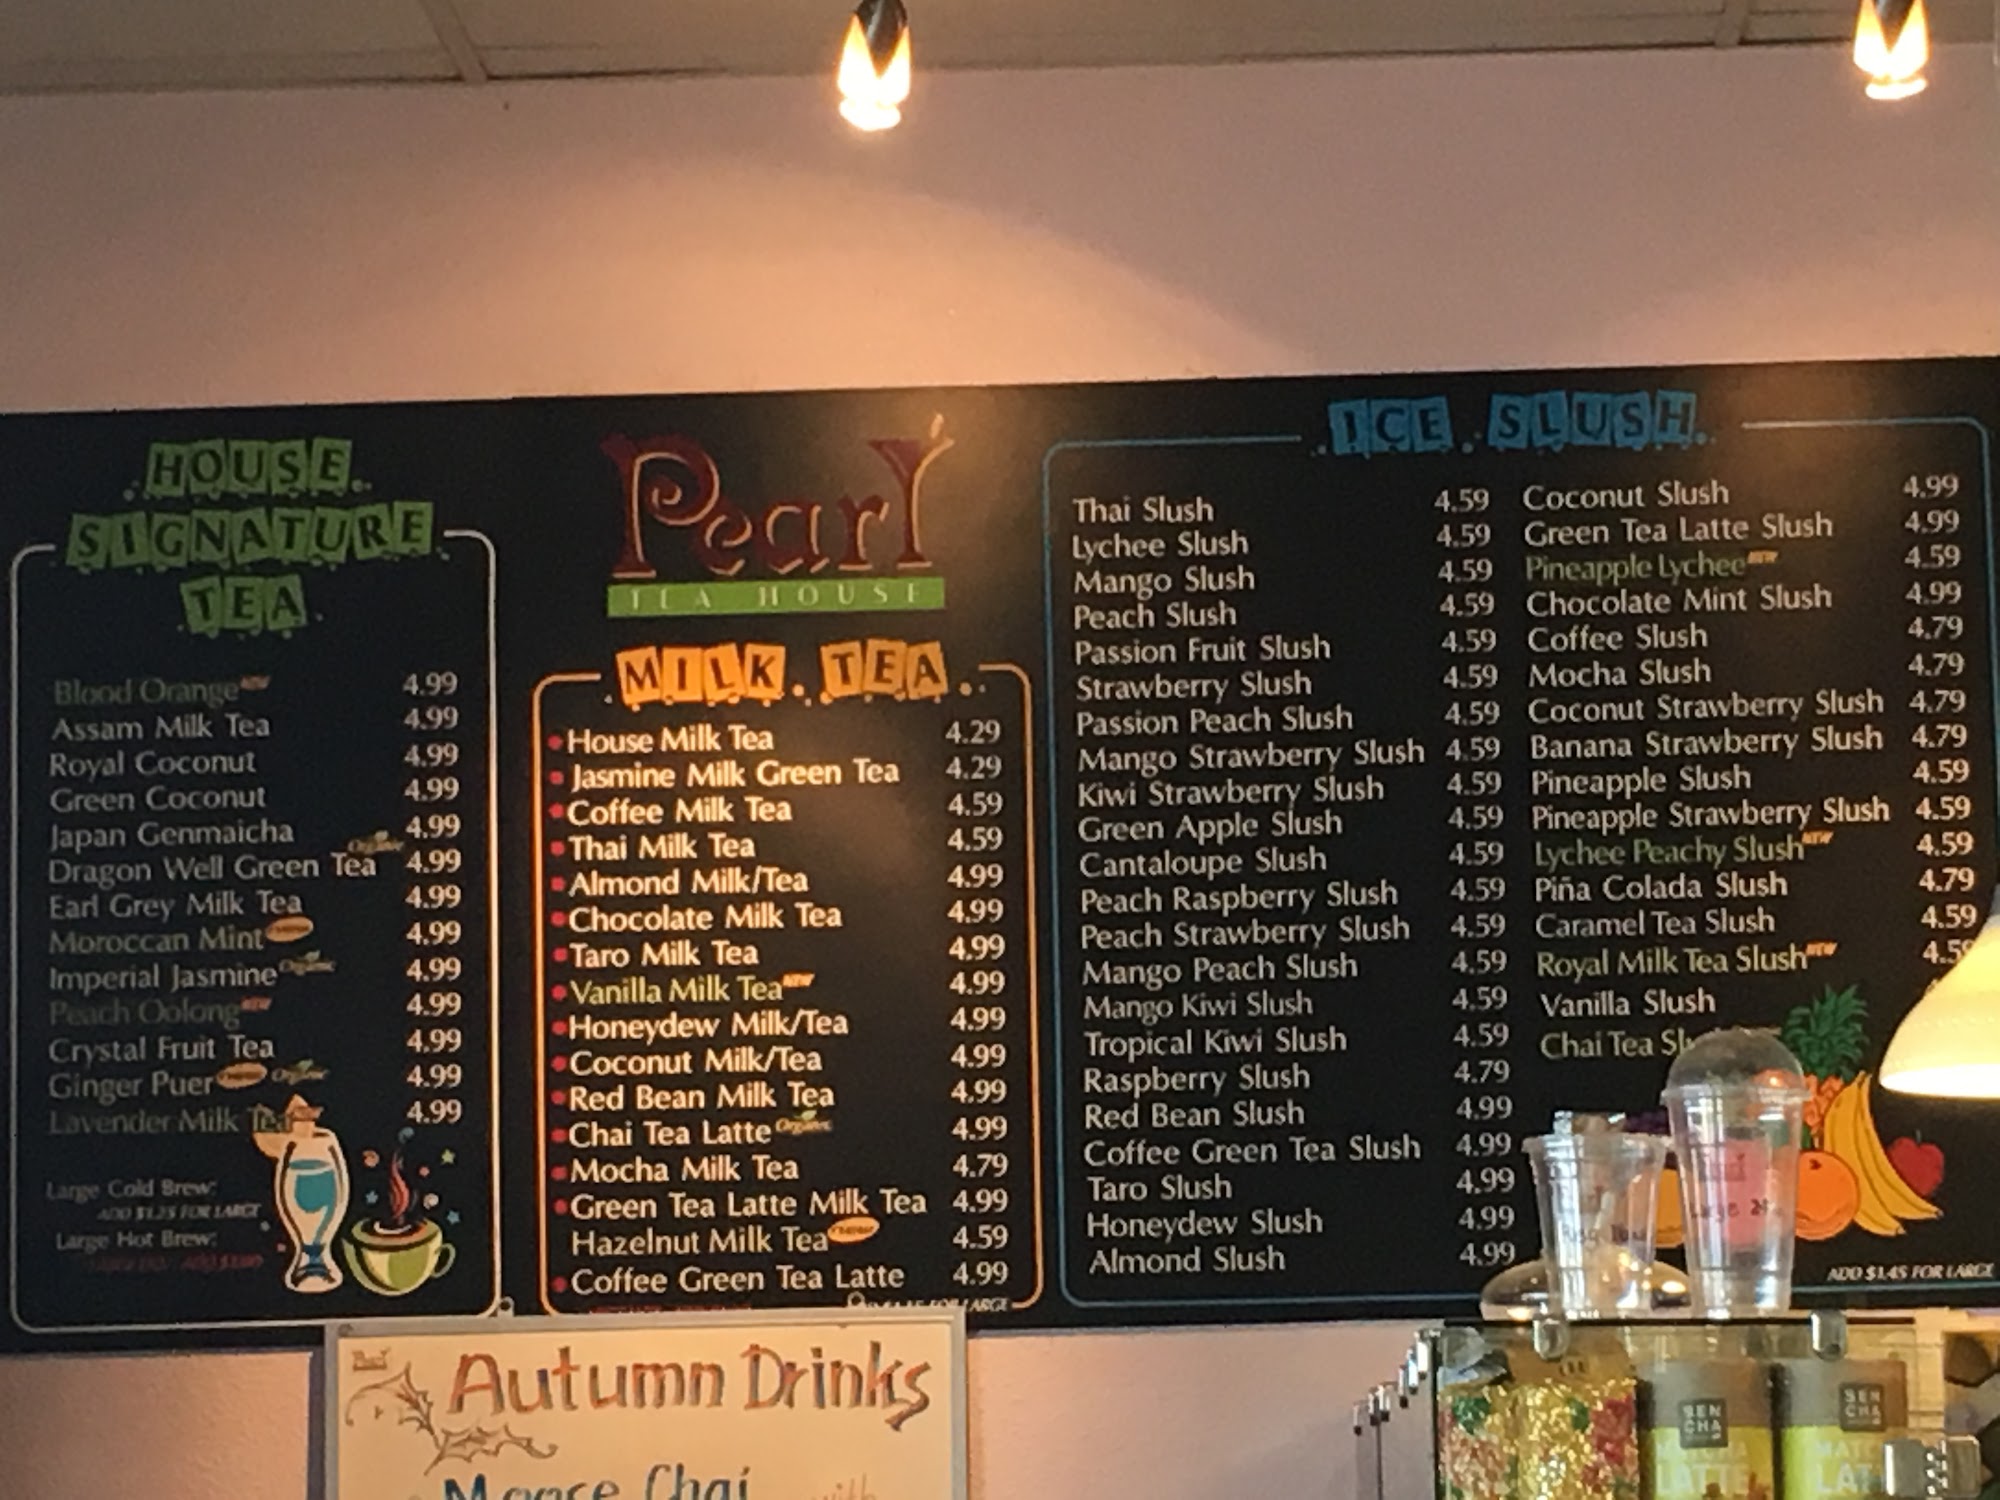 HOUSE
SIGNATURE
TEA
Blood Orange NEW 4.99
Assam Milk Tea 4.99
Royal Coconut 4.99
Green Coconut 4.99
Japan Genmaicha 4.99
Dragon Well Green Tea Organic 4.99
Earl Grey Milk Tea 4.99
Moroccan Mint 4.99
Imperial Jasmine Organic 4.99
Peach Oolong NEW 4.99
Crystal Fruit Tea 4.99
Ginger Puer Organic 4.99
Lavender Milk Tea 4.99
Large Cold Brew:
ADD $1.25 FOR LARGE
Large Hot Brew:
Pearl
TEA HOUSE
MILK TEA
House Milk Tea 4.29
Jasmine Milk Green Tea 4.29
Coffee Milk Tea 4.59
Thai Milk Tea 4.59
Almond Milk/Tea 4.99
Chocolate Milk Tea 4.99
Taro Milk Tea 4.99
Vanilla Milk Tea NEW 4.99
Honeydew Milk/Tea 4.99
Coconut Milk/Tea 4.99
Red Bean Milk Tea 4.99
Chai Tea Latte Organic 4.99
Mocha Milk Tea 4.79
Green Tea Latte Milk Tea 4.99
Hazelnut Milk Tea 4.59
Coffee Green Tea Latte 4.99
FOR LARGE
ICE SLUSH
Thai Slush 4.59
Lychee Slush 4.59
Mango Slush 4.59
Peach Slush 4.59
Passion Fruit Slush 4.59
Strawberry Slush 4.59
Passion Peach Slush 4.59
Mango Strawberry Slush 4.59
Kiwi Strawberry Slush 4.59
Green Apple Slush 4.59
Cantaloupe Slush 4.59
Peach Raspberry Slush 4.59
Peach Strawberry Slush 4.59
Mango Peach Slush 4.59
Mango Kiwi Slush 4.59
Tropical Kiwi Slush 4.59
Raspberry Slush 4.79
Red Bean Slush 4.99
Coffee Green Tea Slush 4.99
Taro Slush 4.99
Honeydew Slush 4.99
Almond Slush 4.99
Coconut Slush 4.99
Green Tea Latte Slush 4.99
Pineapple Lychee NEW 4.59
Chocolate Mint Slush 4.99
Coffee Slush 4.79
Mocha Slush 4.79
Coconut Strawberry Slush 4.79
Banana Strawberry Slush 4.79
Pineapple Slush 4.59
Pineapple Strawberry Slush 4.59
Lychee Peachy Slush NEW 4.59
Piña Colada Slush 4.79
Caramel Tea Slush 4.59
Royal Milk Tea Slush NEW 4.59
Vanilla Slush
Chai Tea Sl
ADD $1.45 FOR LARGE
Pearl
Autumn Drinks
Moose Chai with
SEN
CHA
MATCHA
LATTE
SEN
CHA
MATC
LAT